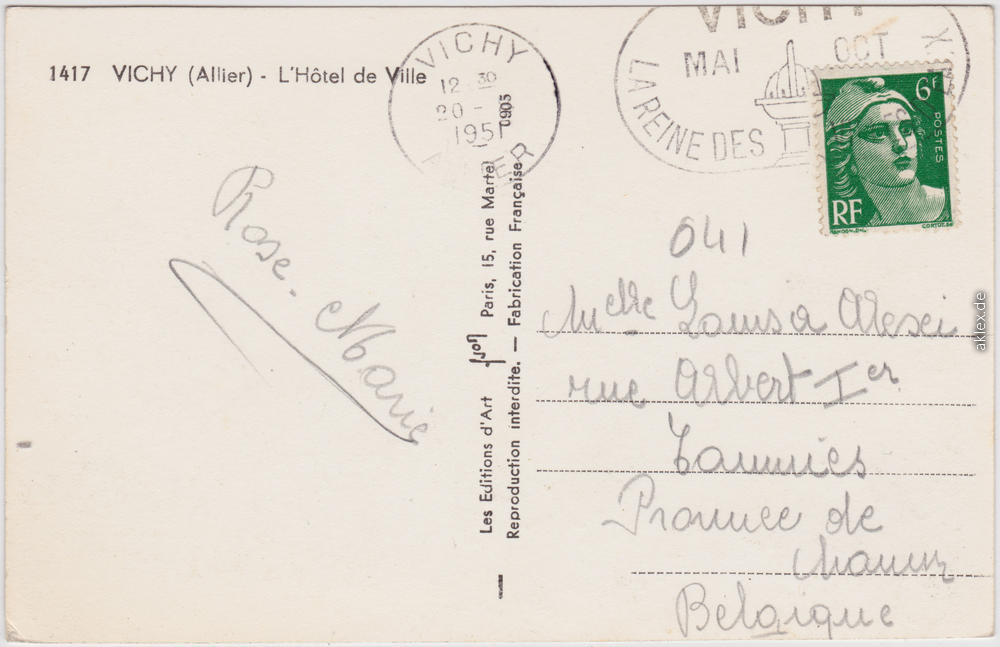 1417 VICHY (Allier) - L'Hôtel de Ville
VICHY
12 30
20 - 
1951
ALLIER
0905
VICHY
MAI OCT
LA REINE DES
6F
POSTES
RF
Rose-Marie
Les Editions d'Art Paris, 15, rue Martel
Reproduction interdite. — Fabrication Française
041
Melle Louisa Alexei
rue Albert Ier
Tamines
Province de
Namur
Belgique
aklex.de